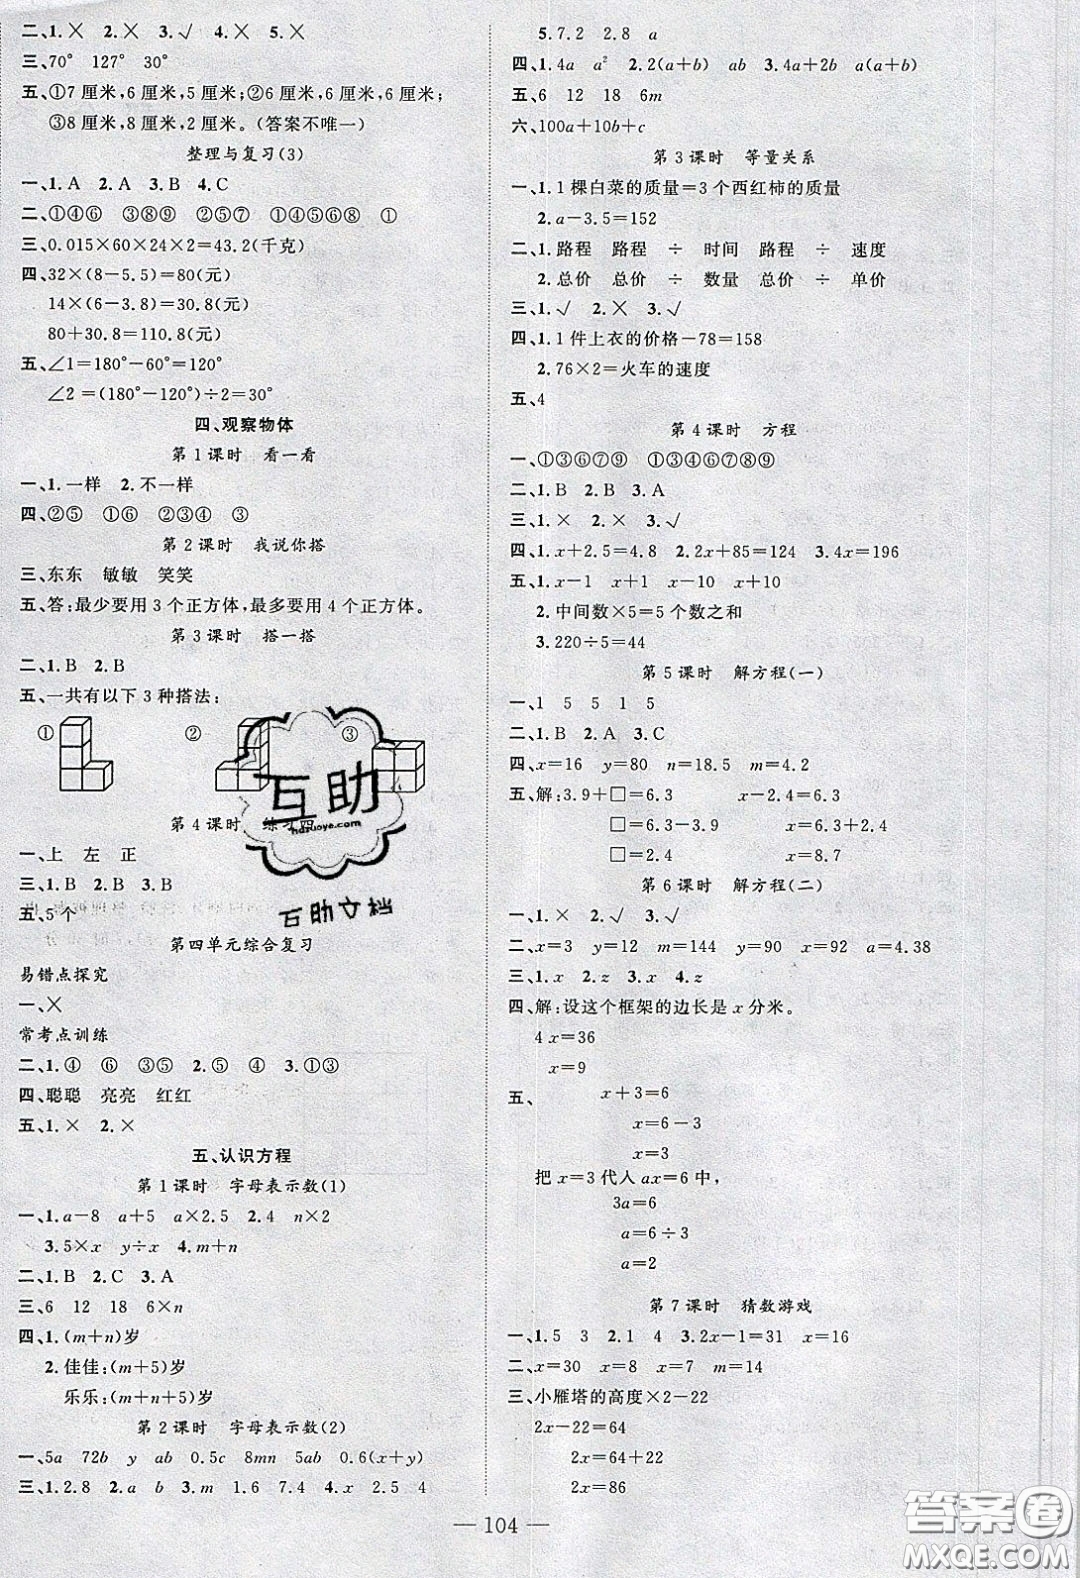 二、1.× 2.× 3.√ 4.× 5.×
三、70° 127° 30°
五、①7厘米,6厘米,5厘米;②6厘米,6厘米,6厘米;
③8厘米,8厘米,2厘米。(答案不唯一)
整理与复习(3)
一、1.A 2.A 3.B 4.C
二、①④⑥ ③⑧⑨ ②⑤⑦ ①②④⑤⑥⑧ ①
三、0.015×60×24×2=43.2(千克)
四、32×(8-5.5)=80(元)
14×(6-3.8)=30.8(元)
80+30.8=110.8(元)
五、∠1=180°-60°=120°
∠2=(180°-120°)÷2=30°
四、观察物体
第1课时 看一看
一、1.一样 2.不一样
四、②⑤ ①⑥ ②③④ ③
第2课时 我说你搭
三、东东 敏敏 笑笑
五、答:最少要用3个正方体,最多要用4个正方体。
第3课时 搭一搭
二、1.B 2.B
五、一共有以下3种搭法:
① ② ③
第4课时 练习四
一、上 左 正
三、1.B 2.B 3.B
五、5个
第四单元综合复习
易错点探究
一、×
常考点训练
二、1.④ ⑥ ③⑤ 2.⑤ ④ 3.①③
四、聪聪 亮亮 红红
五、1.× 2.×
五、认识方程
第1课时 字母表示数(1)
一、1.a-8 a+5 a×2.5 2.4 n×2
3.5×x y÷x 4.m+n
二、1.B 2.C 3.A
三、6 12 18 6×n
四、1.(m+n)岁
2.佳佳:(m+5)岁
乐乐:(m+n+5)岁
第2课时 字母表示数(2)
一、5a 72b y ab 0.5c 8mn 5a 0.6(x+y)
三、1.2.8 2.a b 3.m 1.6 4.x 2.5 4
5.7.2 2.8 a
四、1.4a a² 2.2(a+b) ab 3.4a+2b a(a+b)
五、6 12 18 6m
六、100a+10b+c
第3课时 等量关系
一、1.1棵白菜的质量=3个西红柿的质量
2.a-3.5=152
二、1.路程 路程 ÷ 时间 路程 ÷ 速度
2.总价 总价 ÷ 数量 总价 ÷ 单价
三、1.√ 2.× 3.√
四、1.1件上衣的价格-78=158
2.76×2=火车的速度
五、4
第4课时 方程
一、①③⑥⑦⑨ ①③④⑥⑦⑧⑨
二、1.B 2.B 3.A
三、1.× 2.× 3.√
四、1.x+2.5=4.8 2.2x+85=124 3.4x=196
五、1.x-1 x+1 x-10 x+10
2.中间数×5=5个数之和
3.220÷5=44
第5课时 解方程(一)
一、1 5 5 1 5
二、1.B 2.A 3.C
四、x=16 y=80 n=18.5 m=4.2
五、解:3.9+□=6.3 x-2.4=6.3
□=6.3-3.9 x=6.3+2.4
□=2.4 x=8.7
第6课时 解方程(二)
一、1.× 2.√ 3.×
二、x=3 y=12 m=144 y=90 x=92 a=4.38
三、1.x 2.z 3.x 4.z
四、解:设这个框架的边长是x分米。
4x=36
x=9
五、 x+3=6
x=6-3
x=3
把x=3代人ax=6中,
3a=6
a=6÷3
a=2
第7课时 猜数游戏
一、1.5 3 2.1 4 3.2x-1=31 x=16
二、x=30 x=8 x=7 x=22
三、小雁塔的高度×2-22
2x-22=64
2x=64+22
2x=86
— 104 —
互助
hdzuoye.com
互助文档
答案圈
MXQE.COM